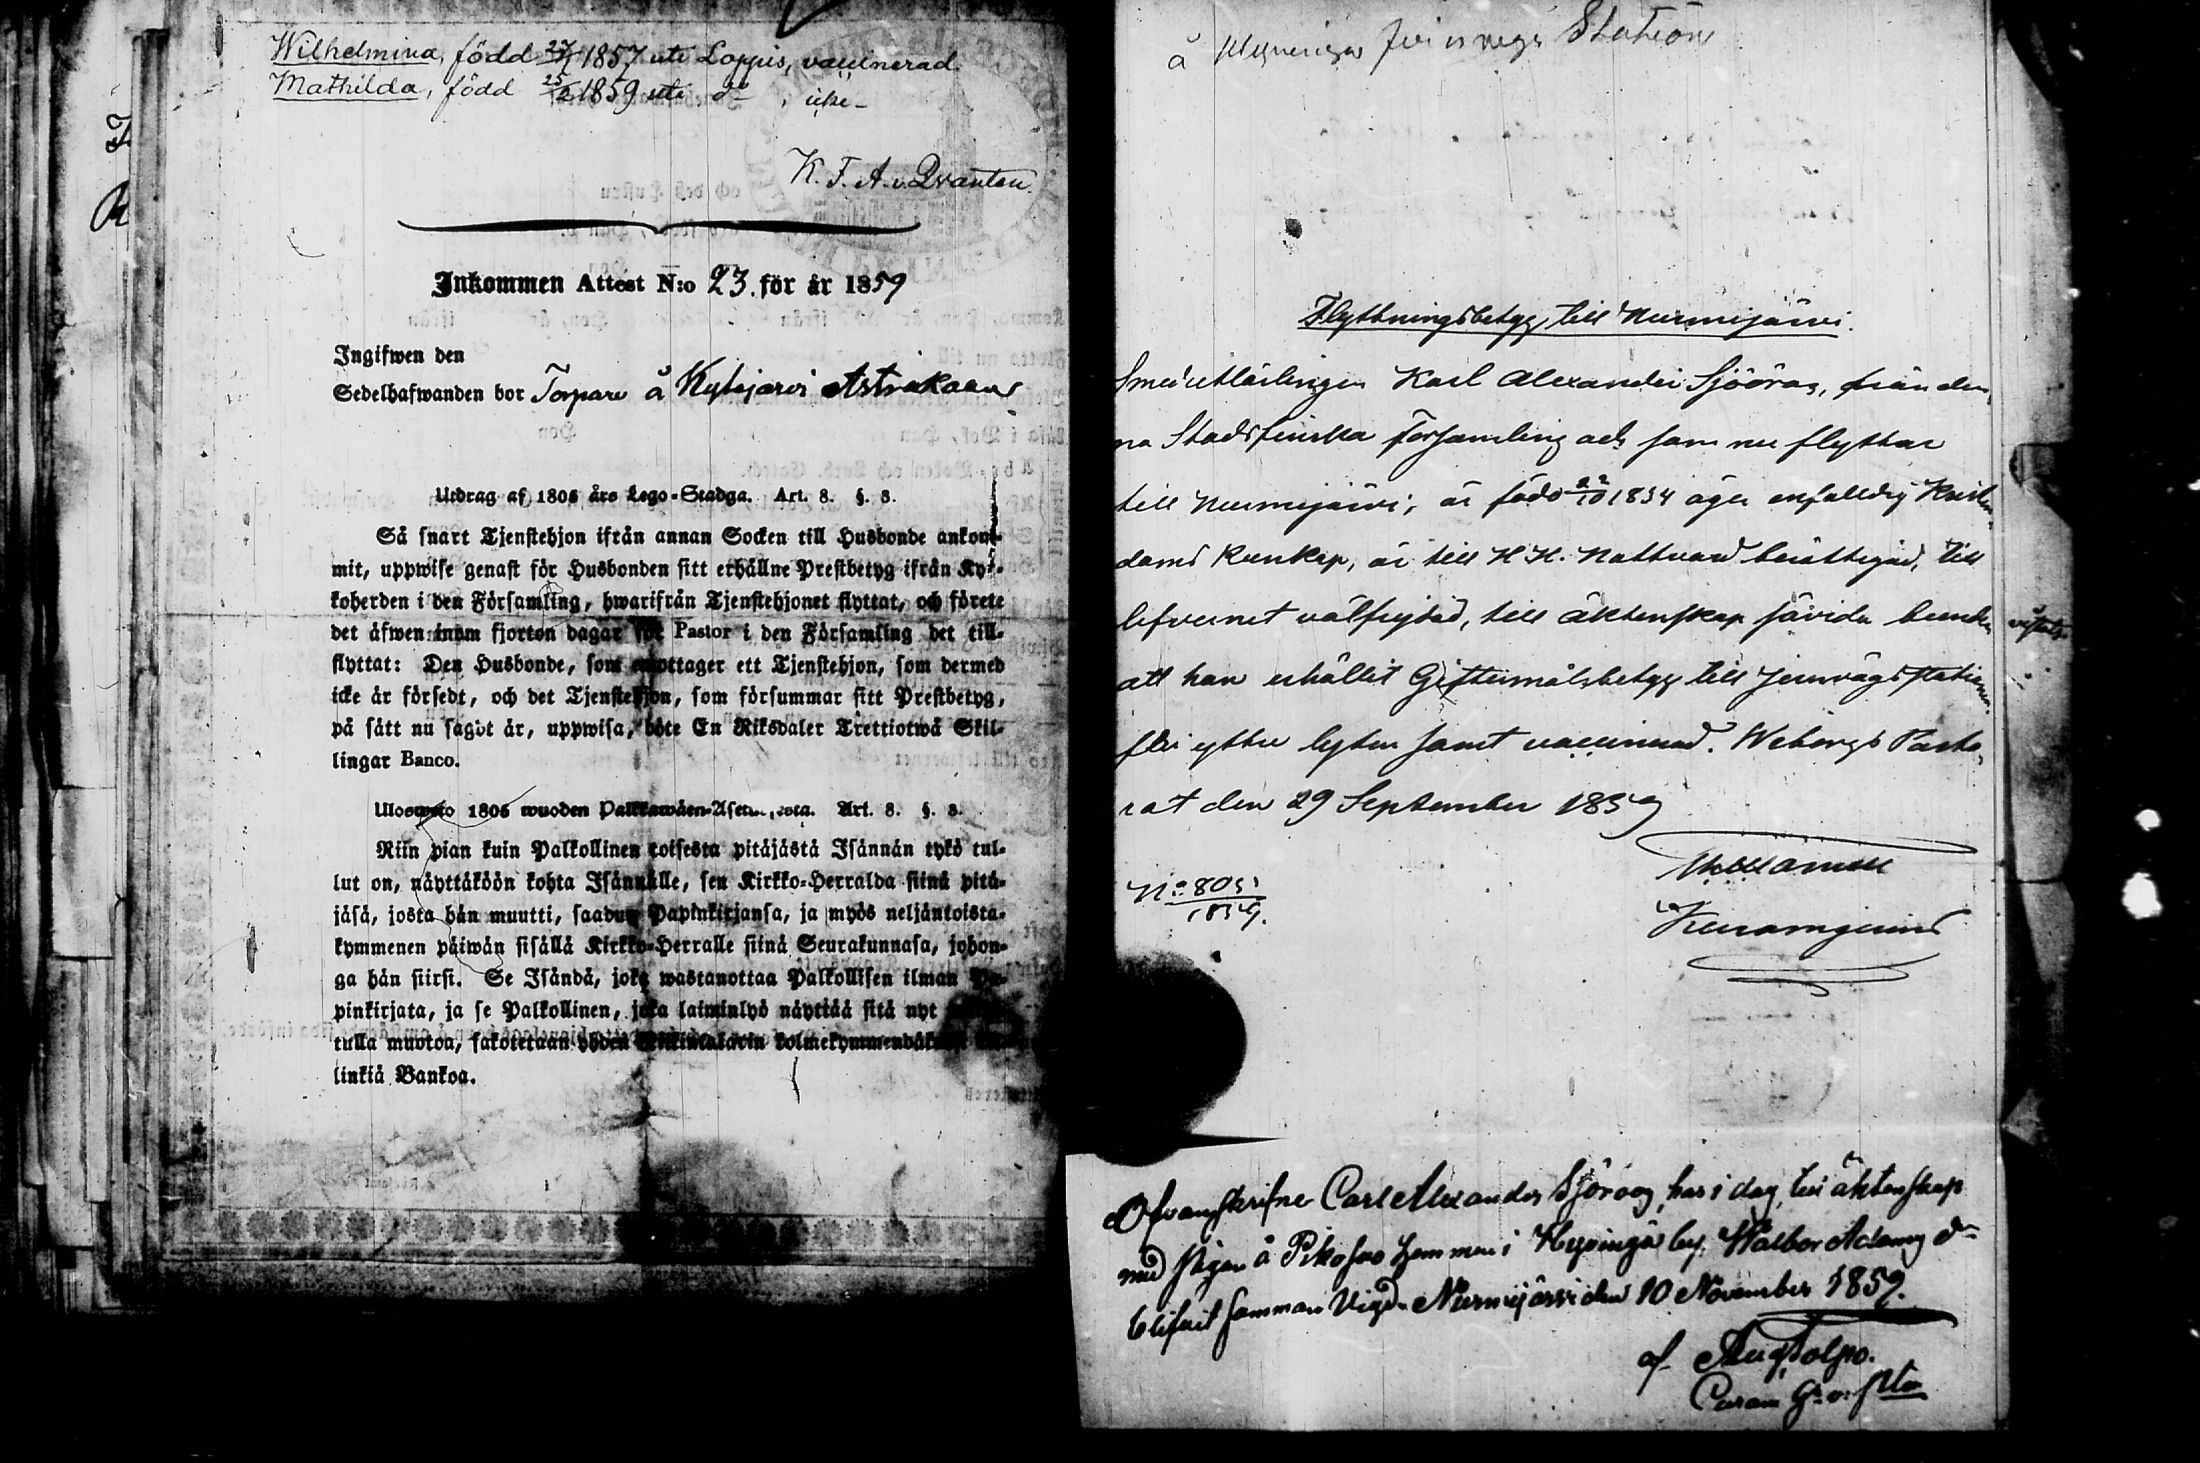 Wilhelmina, född 27/1 1857 uti Loppis, vaccinerad.
Mathilda, född 25/2 1859 uti do, icke-
K. F. A. v. Qvanten.
Inkommen Attest N:o 23. för år 1859
Ingifwen den
Sedelhafwanden bor Torpare å Kytäjärvi Astrakaans
Utdrag af 1805 års Lego-Stadga. Art. 8. §. 8.
Så snart Tjenstehjon ifrån annan Socken till Husbonde ankom-
mit, uppwise genast för Husbonden sitt erhållne Prestbetyg ifrån Kyr-
koherden i den Församling, hwarifrån Tjenstehjonet flyttat, och förete
det äfwen inom fjorton dagar för Pastor i den Församling det till-
flyttat: Den Husbonde, som emottager ett Tjenstehjon, som dermed
icke är försedt, och det Tjenstehjon, som försummar sitt Prestbetyg,
på sätt nu sagdt är, uppwisa, böte En Riksdaler Trettiotwå Skil-
lingar Banco.
Uloswето 1805 wuoden Palkkawäen-Asetuksesta. Art. 8. §. 8.
Niin pian kuin Palkollinen toisesta pitäjästä Isännän tykö tul-
lut on, näyttäköön kohta Isännälle, sen Kirkko-Herralda siinä pitä-
jäsä, josta hän muutti, saadun Papinkirjansa, ja myös neljäntoista-
kymmenen päiwän sisällä Kirkko-Herralle siinä Seurakunnasa, johon-
ga hän siirsi. Se Isändä, joka wastanottaa Palkollisen ilman Pa-
pinkirjata, ja se Palkollinen, joka laiminlyö näyttää sitä nyt
tulla muotoa, sakotetaan yhden Riksintalarin kolmekymmendäkaksi kil-
linkiä Bankoa.
å Hyvinge Jernvägs Station
Flyttningsbetyg till Nurmijärvi.
Smedlärlingen Karl Alexander Sjöroos, från den-
na Stads finska församling och som nu flyttar
till Nurmijärvi; är född 22/10 1834 äger enfalldig Kristen-
doms kunskap, är till H. H. Nattvard berättigad, till
lefvernet välfrejdad, till äktenskap såvida bunden
att han erhållit Giftermålsbetyg till Jernvägsstationen
fri yttre lyten samt vaccinerad. Wiborgs Pasto-
rat den 29 September 1859
No 805 / 1859.
Ofvanskrifne Carl Alexander Sjöroos, har i dag till äktenskap
med pigan å Pikosas hemman i Hyvinge by, Walbor Adams dr
blifvit samman Vigd. Nurmijärvi den 10 November 1859.
af